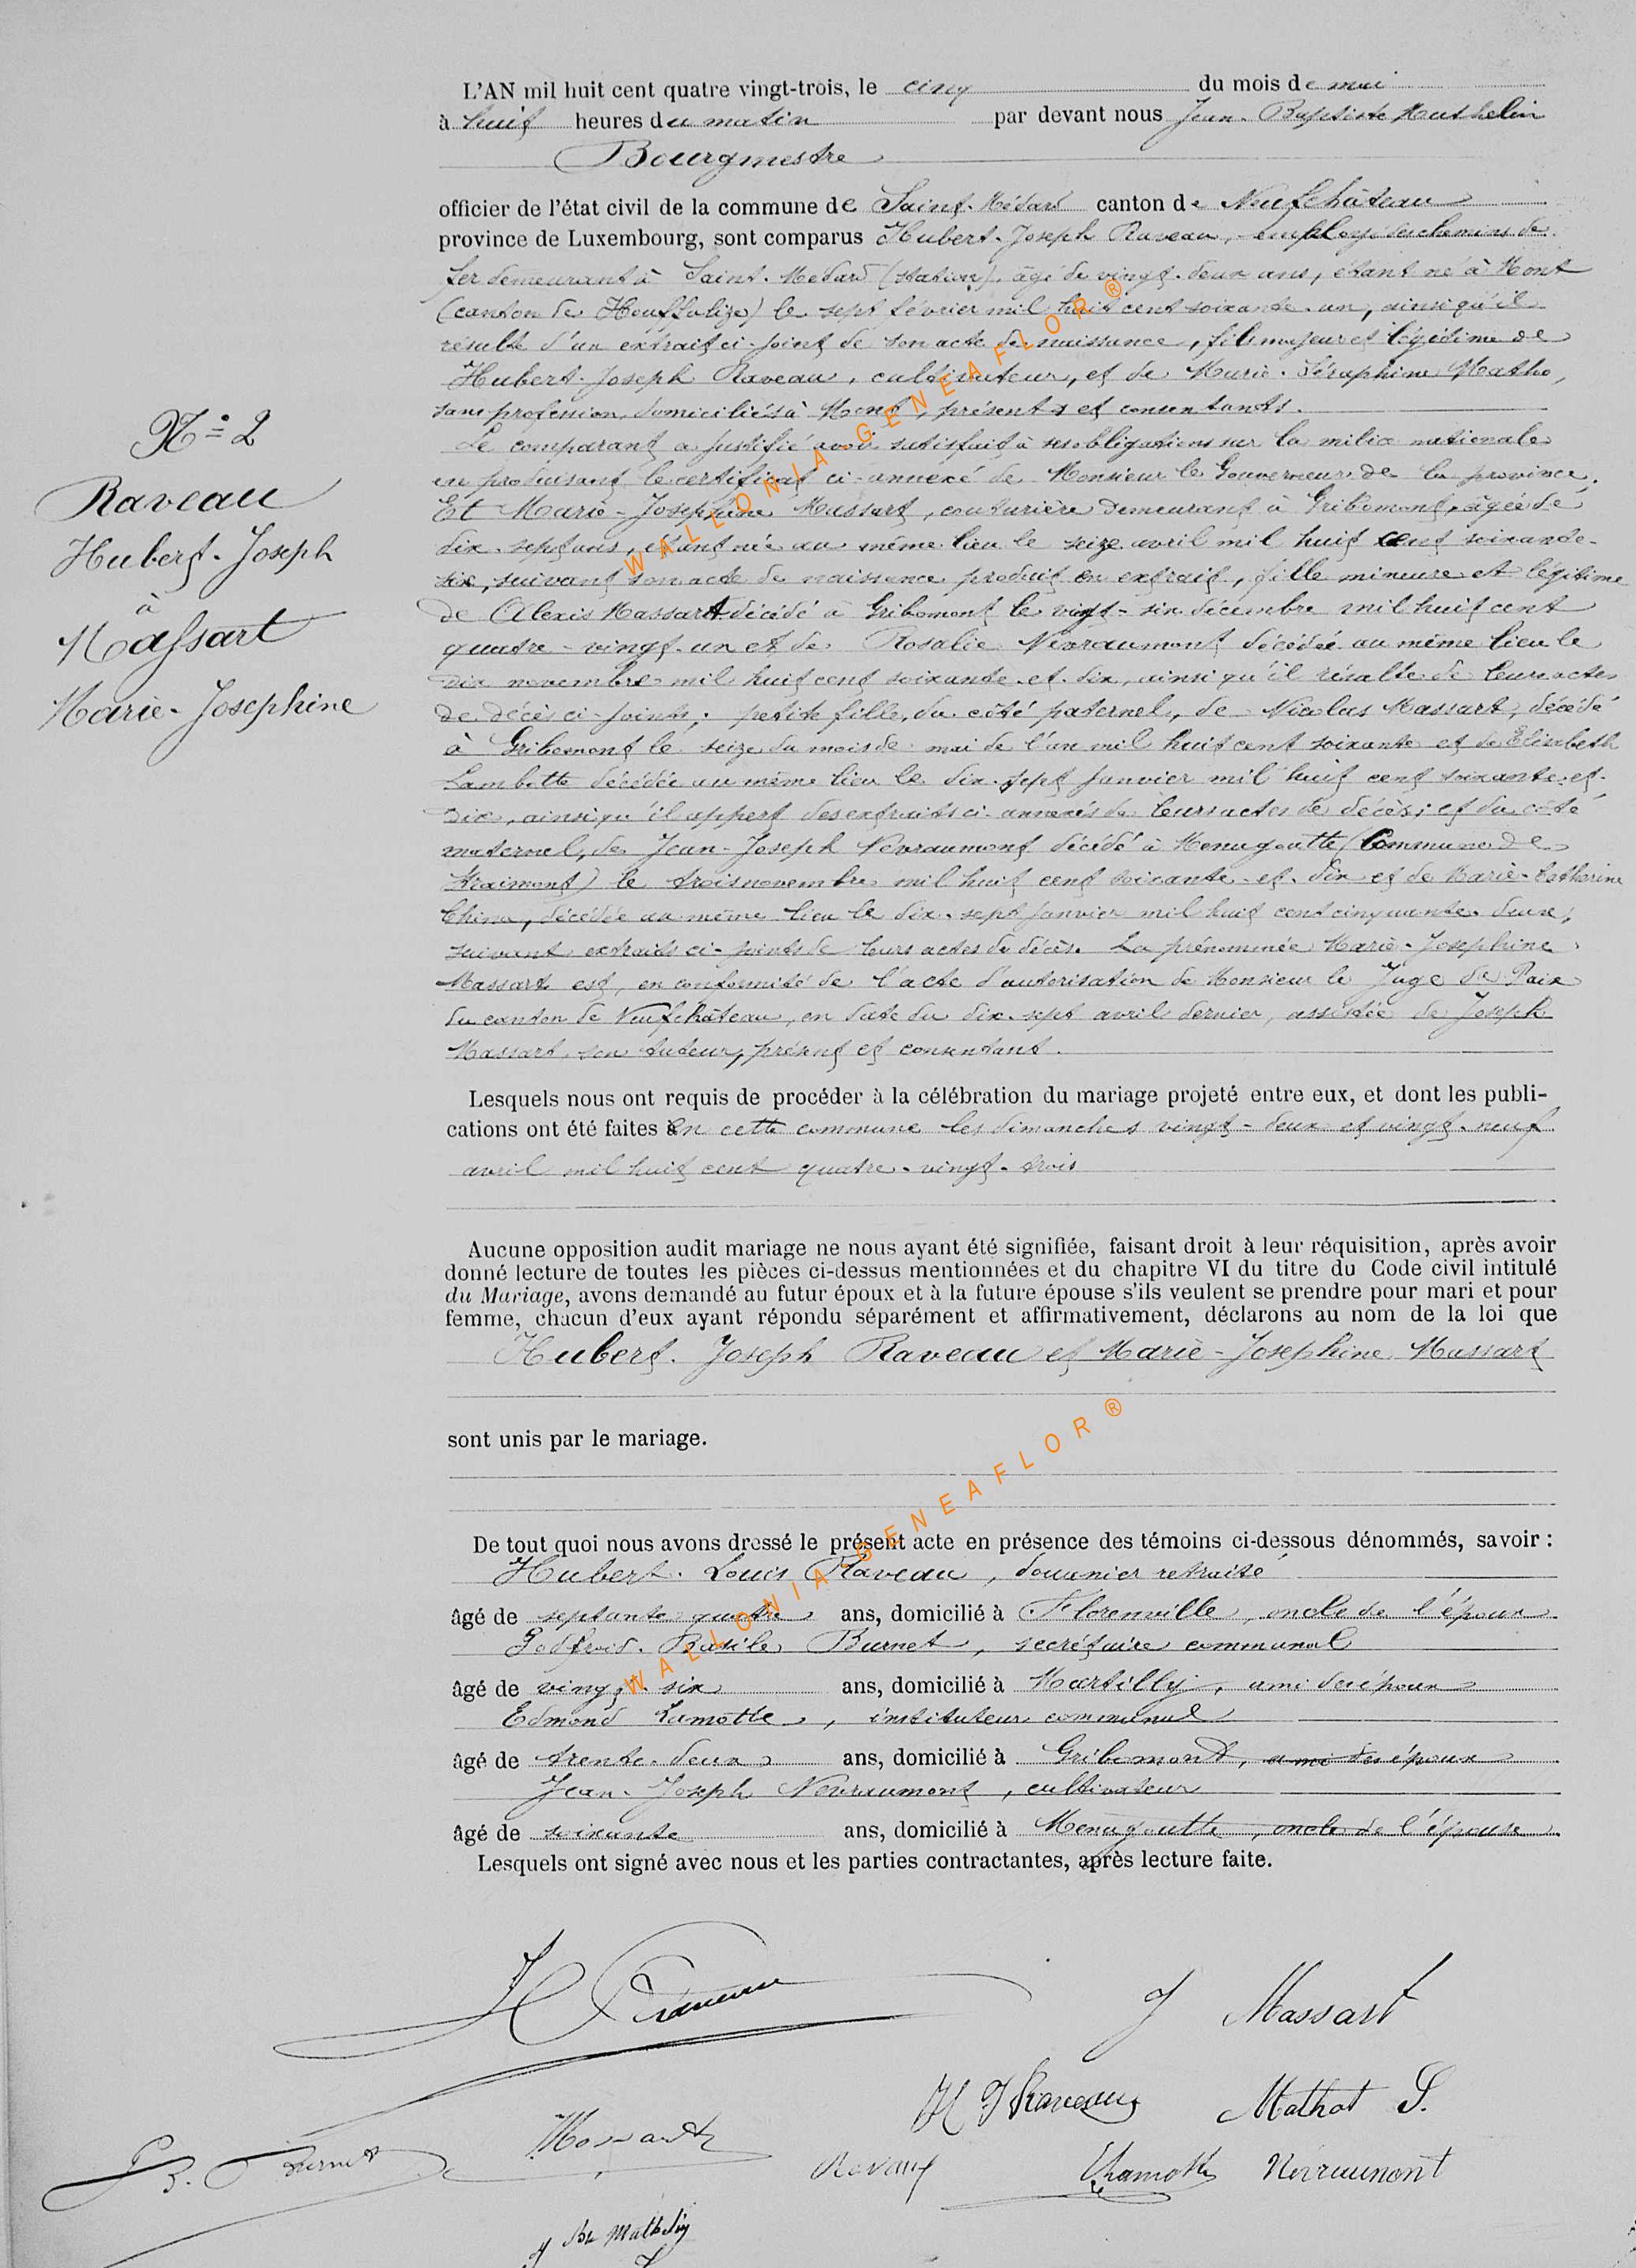 L'AN mil huit cent quatre vingt-trois, le cinq du mois de mai
à huit heures du matin par devant nous Jean-Baptiste Mathelin
Bourgmestre
officier de l'état civil de la commune de Saint-Médard canton de Neufchâteau
province de Luxembourg, sont comparus Hubert-Joseph Raveau, employé des chemins de
fer demeurant à Saint-Médard (station), âgé de vingt-deux ans, étant né à Mont
(canton de Houffalize) le sept février mil huit cent soixante-un, ainsi qu'il
résulte d'un extrait ci-joint de son acte de naissance, fils majeur et légitime de
Hubert-Joseph Raveau, cultivateur, et de Marie-Séraphine Matho,
sans profession, domiciliés à Mont, présents et consentants.
Le comparant a justifié avoir satisfait à ses obligations sur la milice nationale
en produisant le certificat ci-annexé de Monsieur le Gouverneur de la province.
Et Marie-Josephine Massart, couturière demeurant à Gribomont, âgée de
dix-sept ans, étant née au même lieu le seize avril mil huit cent soixante-
six, suivant son acte de naissance produit en extrait, fille mineure et légitime
de Alexis Massart décédé à Gribomont le vingt-six décembre mil huit cent
quatre-vingt-un et de Rosalie Nevraumont décédée au même lieu le
dix novembre mil huit cent soixante-et-dix, ainsi qu'il résulte de leurs actes
de décès ci-joints; petite fille, du côté paternel, de Nicolas Massart, décédé
à Gribomont le seize du mois de mai de l'an mil huit cent soixante et de Elisabeth
Lambotte décédée au même lieu le dix-sept janvier mil huit cent soixante-et-
dix, ainsi qu'il appert des extraits ci-annexés de leurs actes de décès; et du côté
maternel, de Jean-Joseph Névraumont décédé à Menugoutte (Commune de
Straimont) le trois novembre mil huit cent soixante-et-dix et de Marie-Catherine
Chine, décédée au même lieu le dix-sept janvier mil huit cent cinquante-deux,
suivant extraits ci-joints de leurs actes de décès. La prénommée Marie-Josephine
Massart est, en conformité de l'acte d'autorisation de Monsieur le Juge de Paix
du canton de Neufchâteau, en date du dix-sept avril dernier, assistée de Joseph
Massart son tuteur, présent et consentant.
N° 2
Raveau
Hubert-Joseph
à
Massart
Marie-Josephine
Lesquels nous ont requis de procéder à la célébration du mariage projeté entre eux, et dont les publi-
cations ont été faites en cette commune les dimanches vingt-deux et vingt-neuf
avril mil huit cent quatre-vingt-trois
Aucune opposition audit mariage ne nous ayant été signifiée, faisant droit à leur réquisition, après avoir
donné lecture de toutes les pièces ci-dessus mentionnées et du chapitre VI du titre du Code civil intitulé
du Mariage, avons demandé au futur époux et à la future épouse s'ils veulent se prendre pour mari et pour
femme, chacun d'eux ayant répondu séparément et affirmativement, déclarons au nom de la loi que
Hubert-Joseph Raveau et Marie-Josephine Massart
sont unis par le mariage.
De tout quoi nous avons dressé le présent acte en présence des témoins ci-dessous dénommés, savoir :
Hubert-Louis Raveau, douanier retraité
âgé de septante quatre ans, domicilié à Florenville, oncle de l'époux
Godfroid-Basile Burnet, secrétaire communal
âgé de vingt-six ans, domicilié à Martilly, ami des époux
Edmond Lamotte, instituteur communal
âgé de trente-deux ans, domicilié à Gribomont, ami des époux
Jean-Joseph Nevraumont, cultivateur
âgé de soixante ans, domicilié à Menugoutte, oncle de l'épouse
Lesquels ont signé avec nous et les parties contractantes, après lecture faite.
H Raveau
J Massart
H J Raveau Mathot S.
G B. Burnet Massart Ravaux Elamotte Névraumont
J Bte Mathelin
WALLONIA-GENEAFLOR®
WALLONIA-GENEAFLOR®